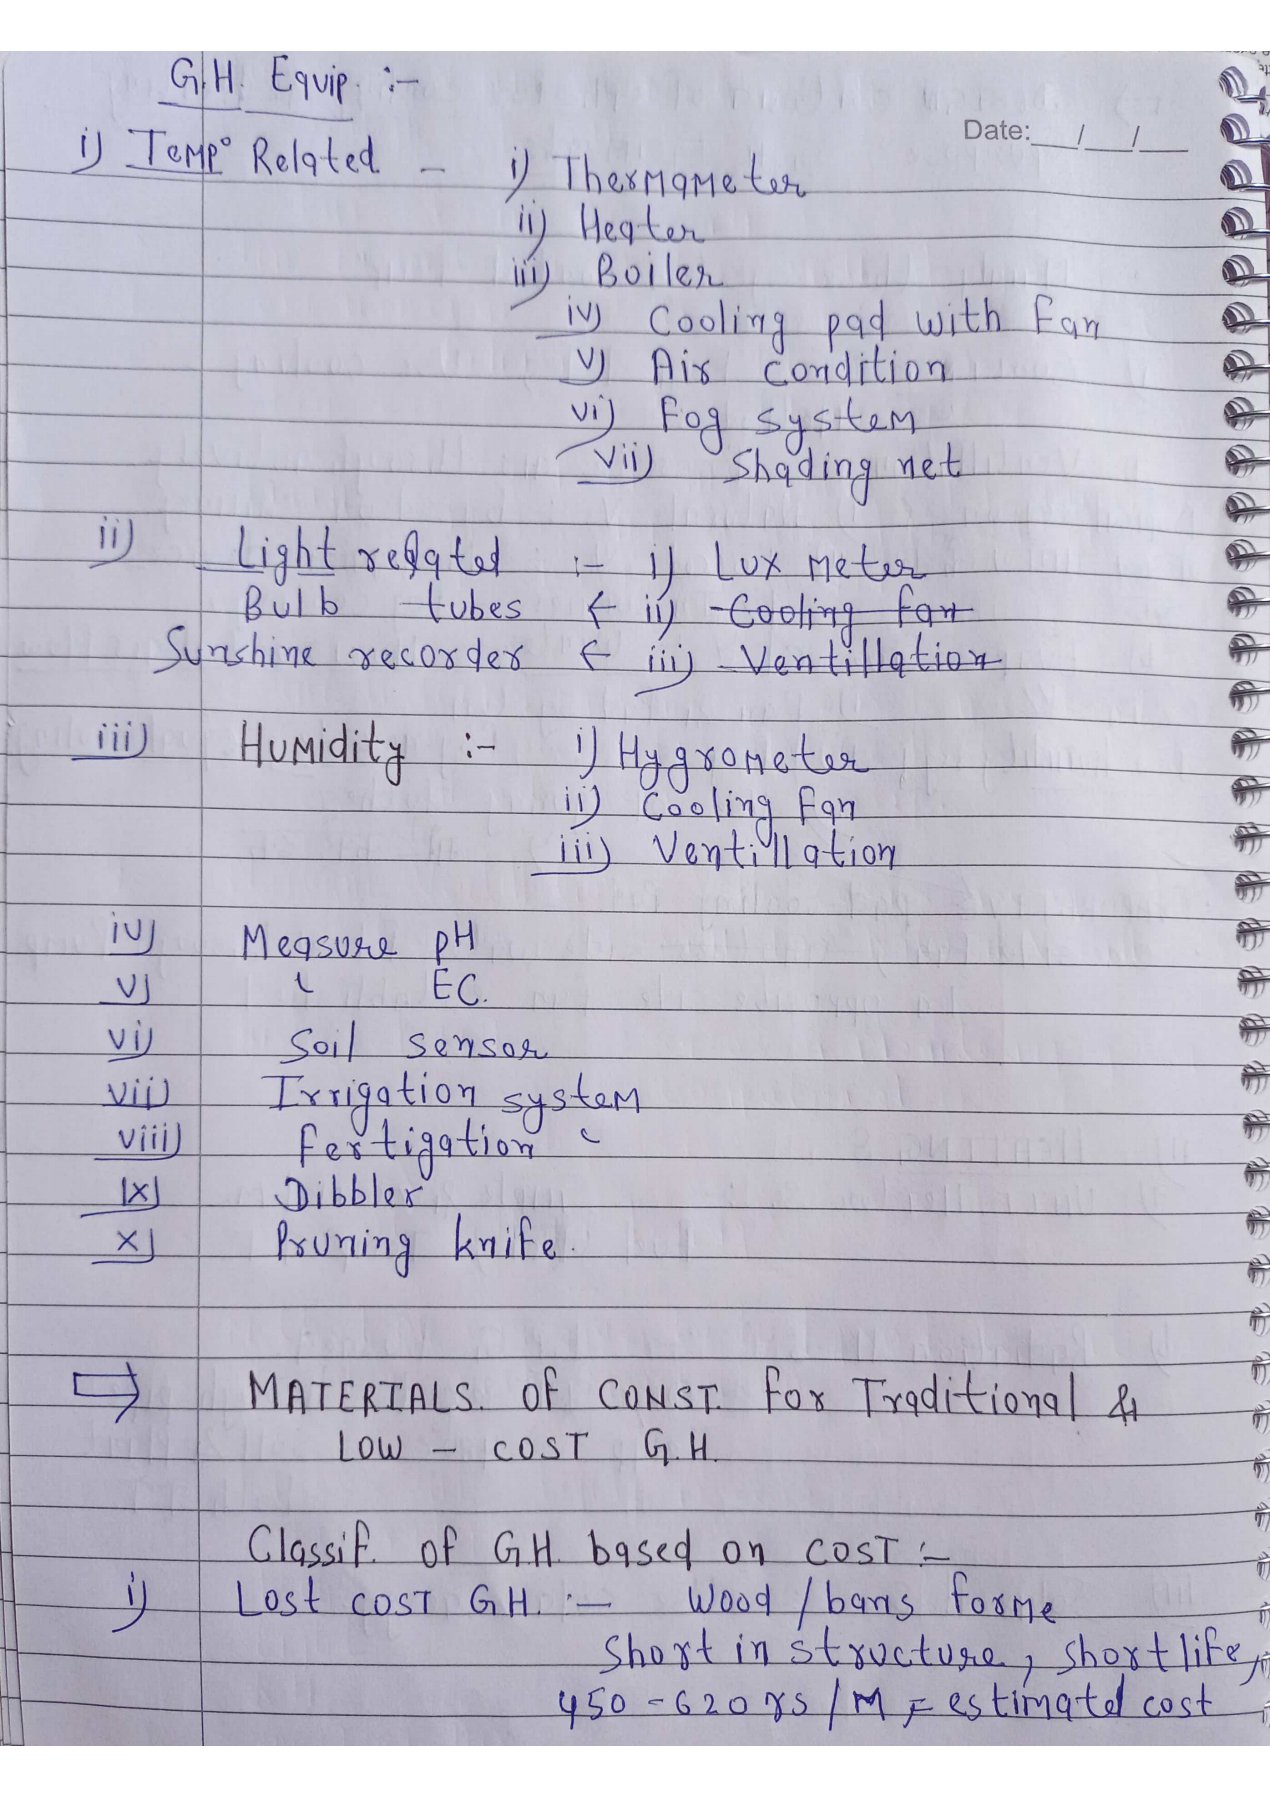 G.H. Equip. :-
Date:__/__/__
i) Temp° Related - i) Thermameter
ii) Heater
iii) Boiler
iv) Cooling pad with Fan
v) Air condition
vi) Fog system
vii) Shading net
ii) Light related :- i) Lux meter
Bulb tubes ← ii) Cooling fan
Sunshine recorder ← iii) Ventillation
iii) Humidity :- i) Hygrometer
ii) Cooling Fan
iii) Ventillation
iv) Measure pH
v) " EC.
vi) Soil sensor
vii) Irrigation system
viii) Fertigation "
ix) Dibbler
x) Pruning knife.
⇒ MATERIALS. OF CONST. For Traditional &
LOW - COST G.H.
Classif. of G.H. based on COST :-
i) Lost COST G.H. :- Wood / bans forme
Short in structure, short life,
450 - 620 rs / M = estimated cost